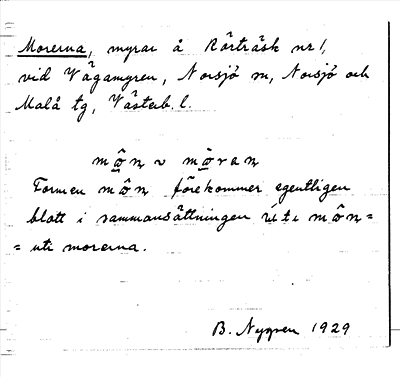 Morerna, myrar å Rörträsk nr 1,
vid Vägamyren, Norsjö sn, Norsjö och
Malå tg, Västerb. l.
mô̲n ~ mo̲ran
Formen mô̲n förekommer egentligen
blott i sammansättningen úti mô̲n =
= uti morerna.
B. Nygren 1929